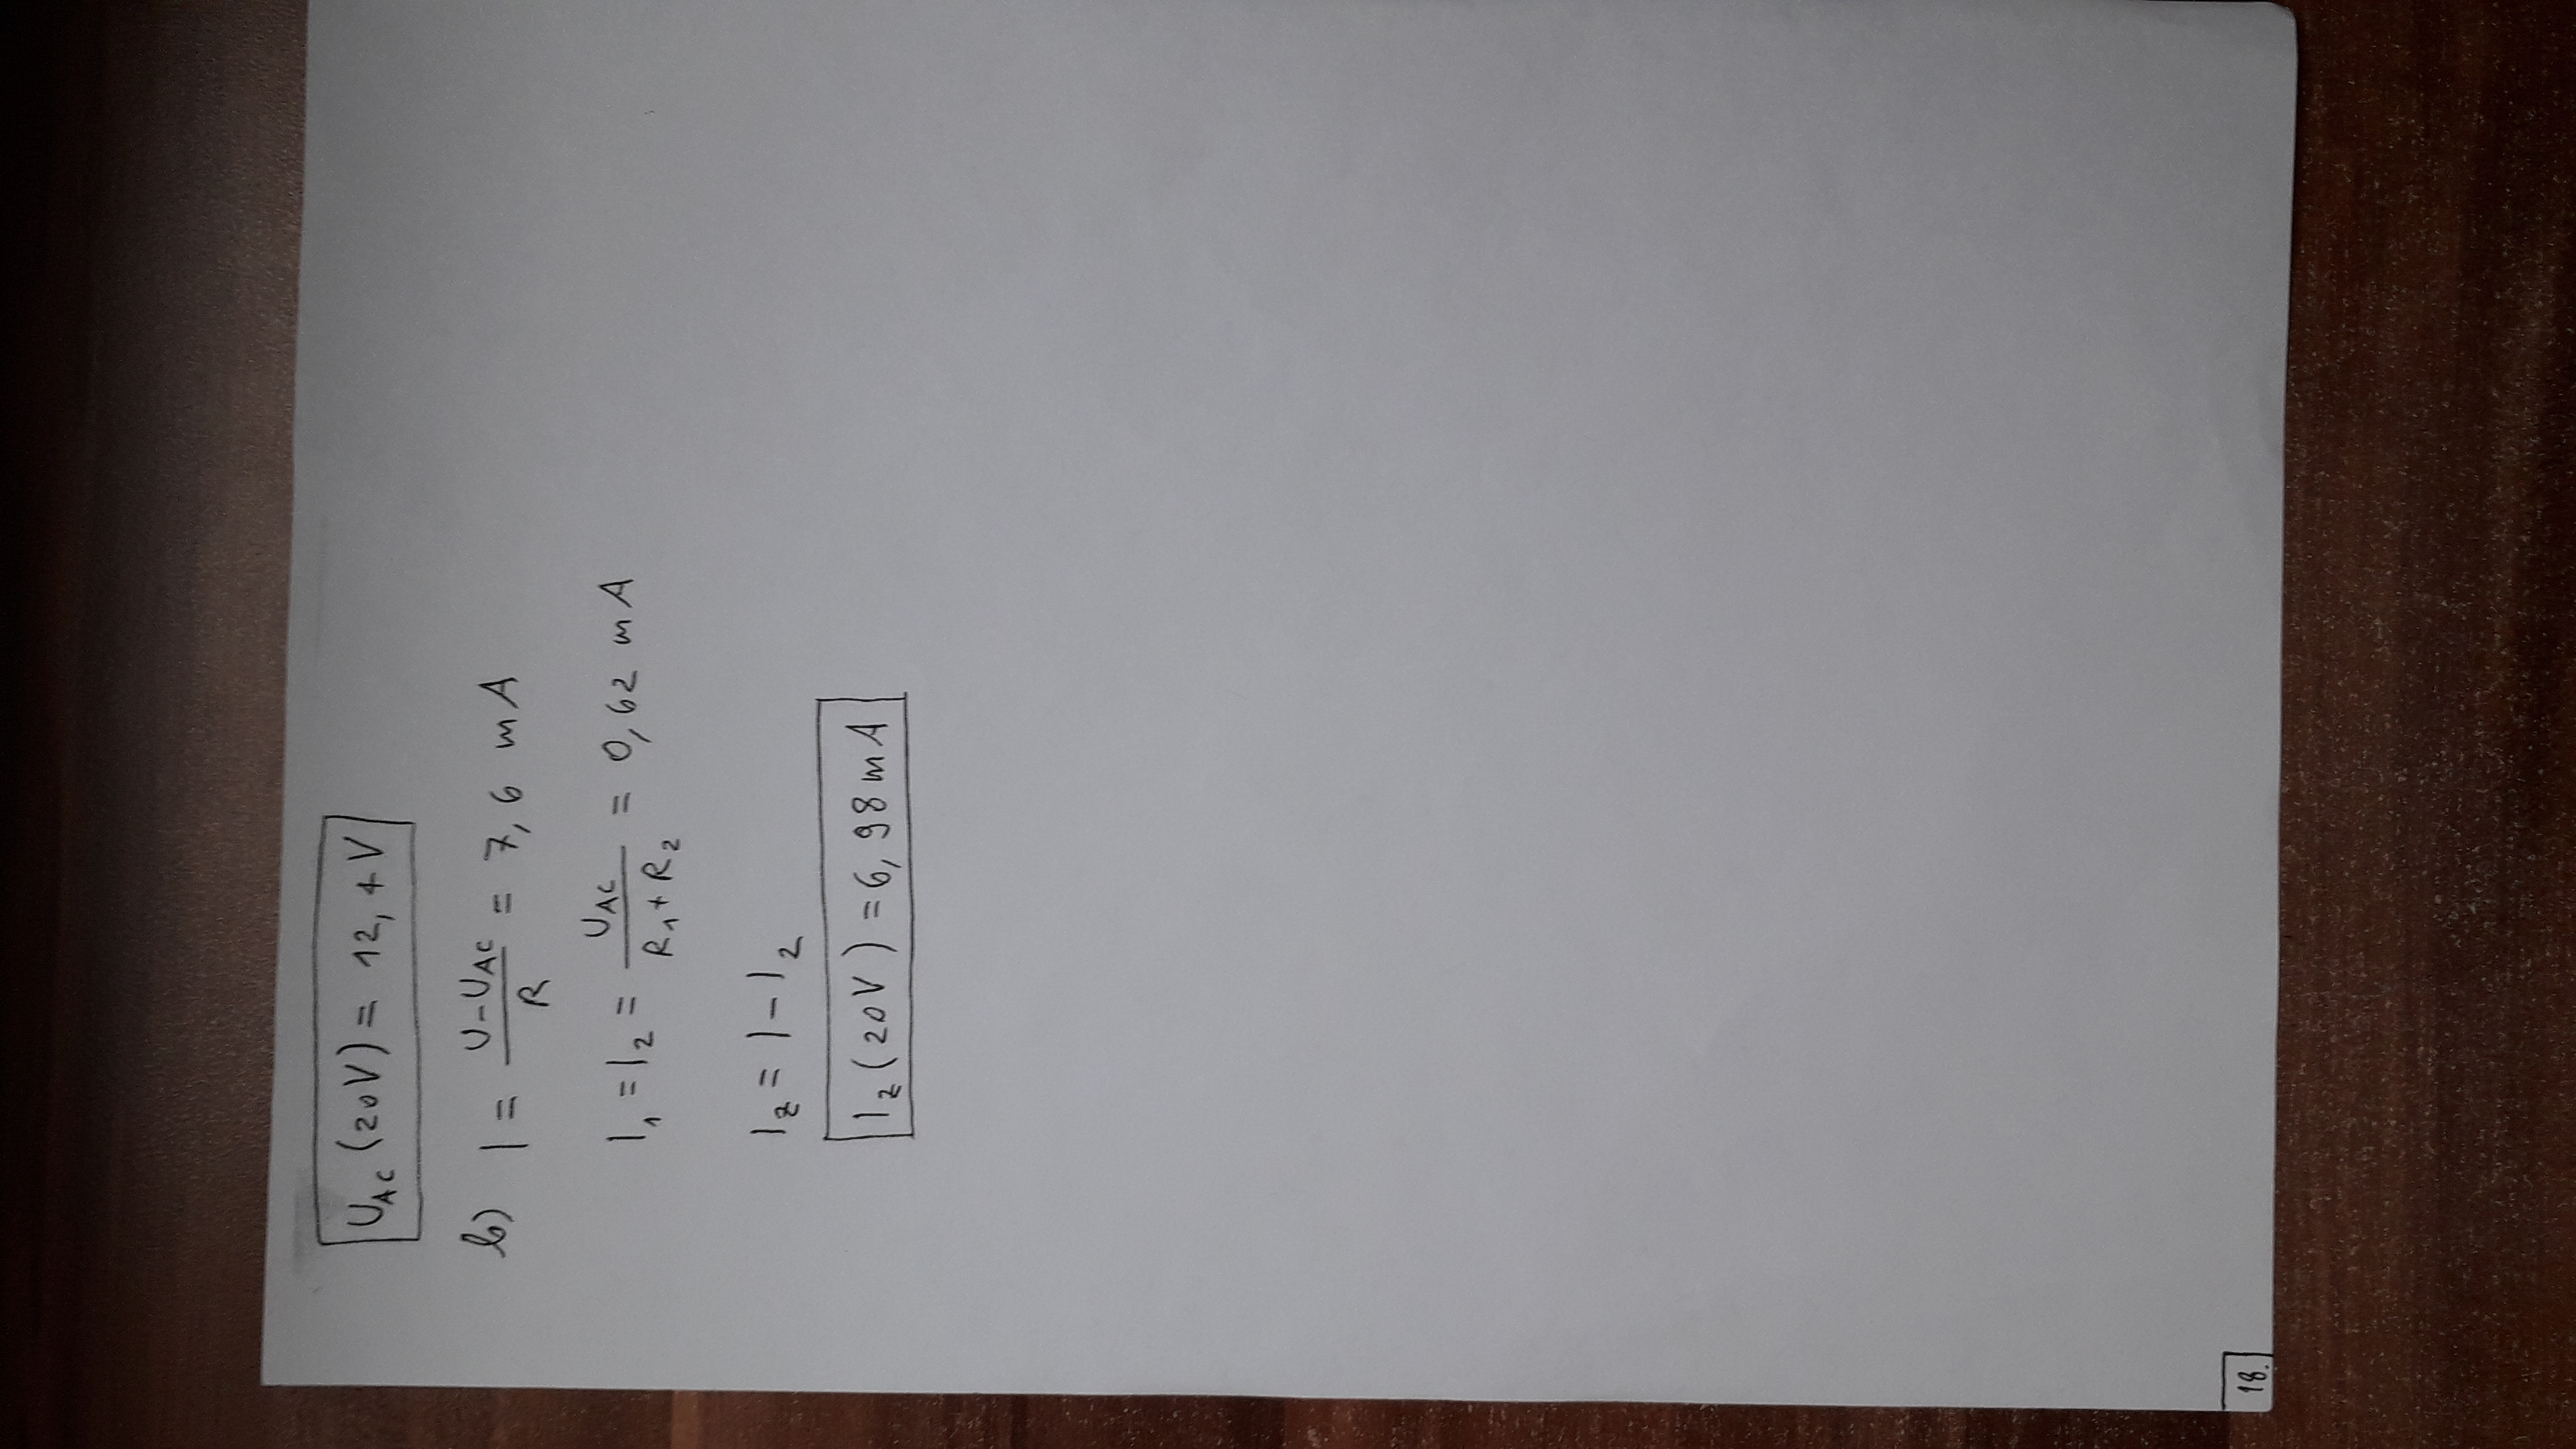 U_AC (20V) = 12,4 V
b) I = (U-U_AC)/R = 7,6 mA
I_1 = I_2 = U_AC/(R_1+R_2) = 0,62 mA
I_z = I - I_2
I_z (20V) = 6,98 mA
18.